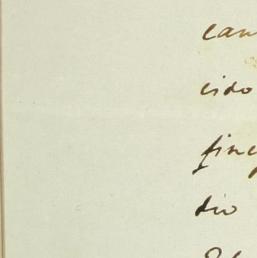 can
cido
fine
dio